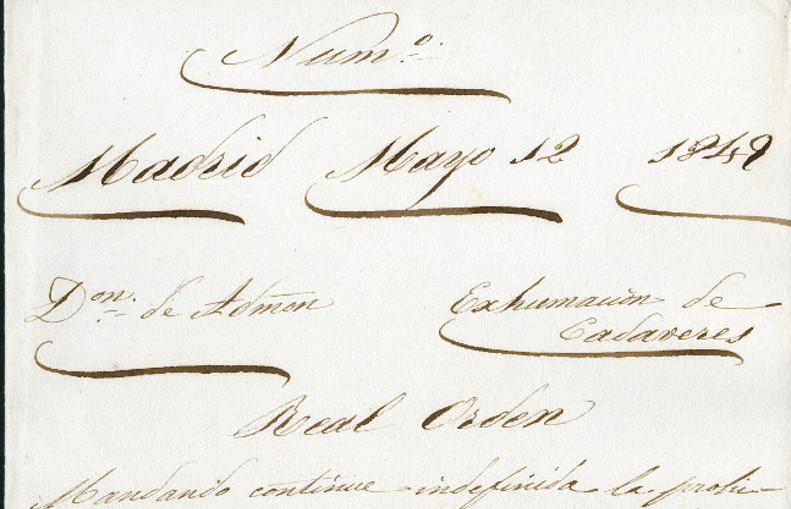 Num.º
Madrid Mayo 12 1849
Don. de Admon Exhumacion de
Cadaveres
Real Orden
Mandando continue indefinida la prohi-